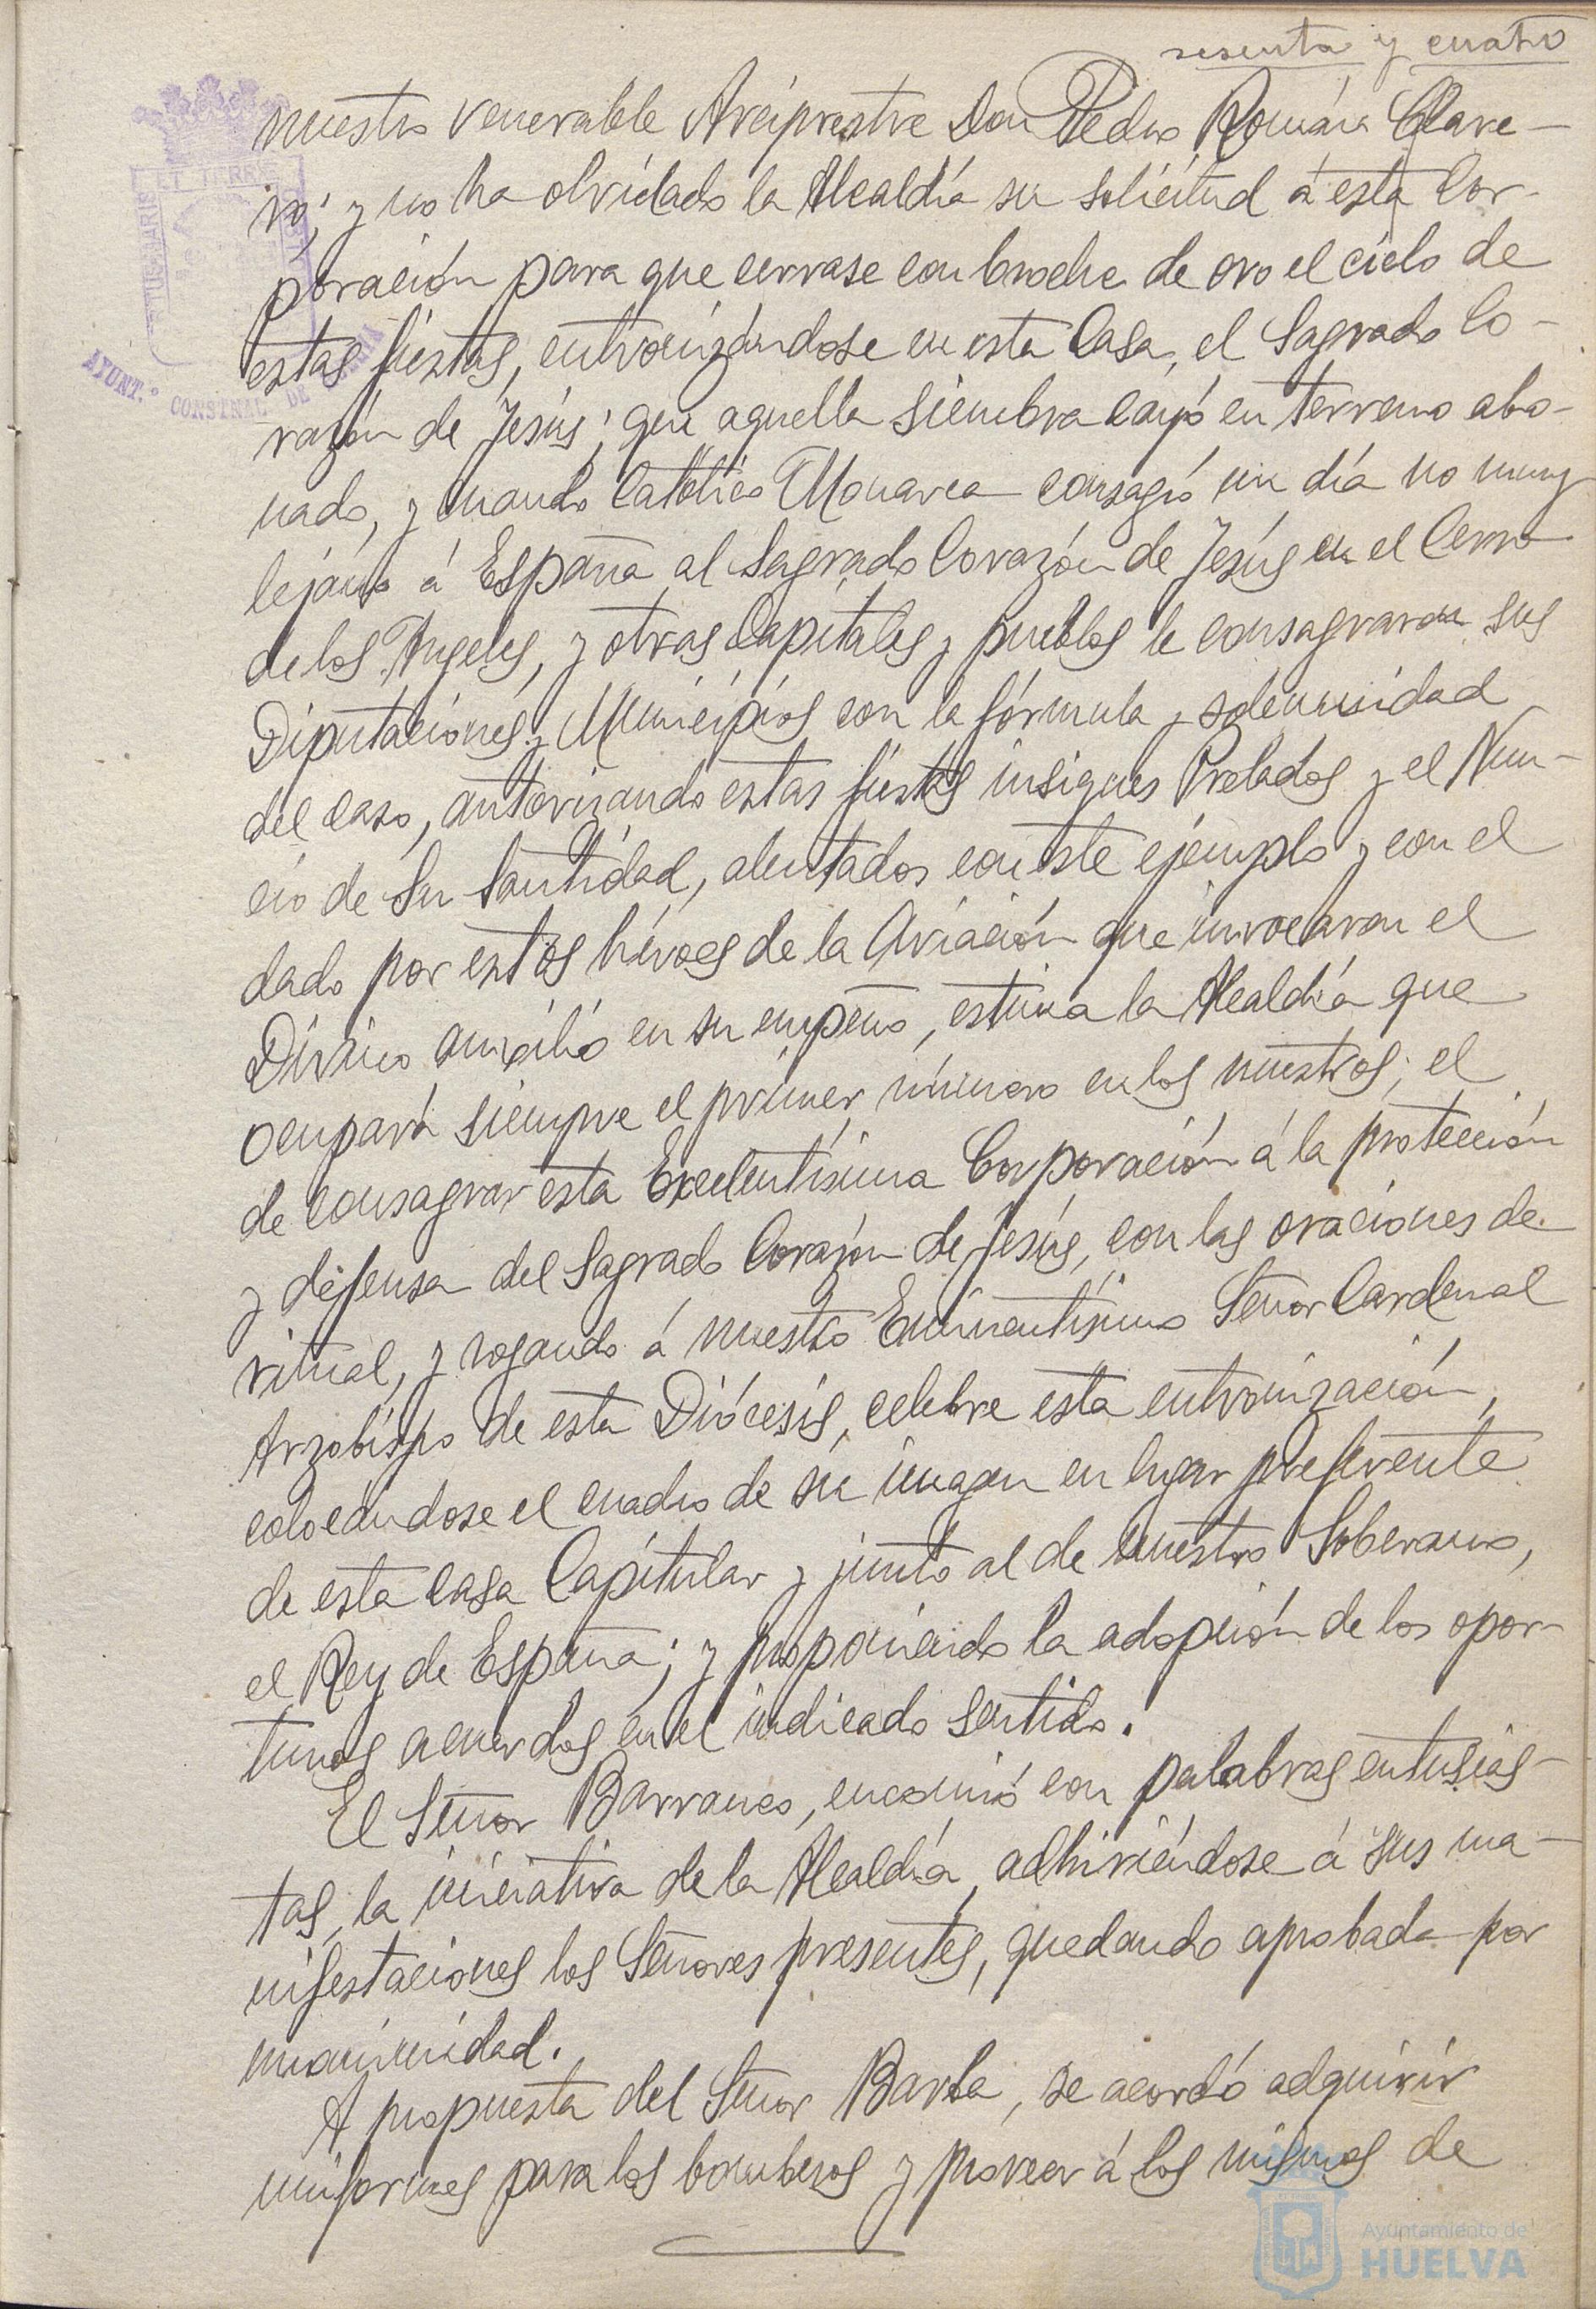 sesenta y cuatro
nuestro venerable Arcipreste Don Pedro Román Clave-
ro; y no ha olvidado la Alcaldía su solicitud á esta Cor-
poración para que cerrase con broche de oro el ciclo de
estas fiestas, entronizándose en esta Casa, el Sagrado Co-
razón de Jesús; que aquella siembra cayó en terreno abo-
nado, y cuando Católico Monarca consagró un día no muy
lejano á España al Sagrado Corazón de Jesús en el Cerro
de los Angeles, y otras Capitales y pueblos le consagraron sus
Diputaciones y Municipios con la fórmula y solemnidad
del caso, autorizando estas fiestas insignes Prelados y el Nun-
cio de Su Santidad, alentados con este ejemplo y con el
dado por estos héroes de la Aviación que invocaron el
Divino auxilio en su empeño, estima la Alcaldía que
ocupará siempre el primer número en los nuestros; el
de consagrar esta Excelentísima Corporación á la protección
y defensa del Sagrado Corazón de Jesús, con las oraciones de
ritual, y rogando á nuestro Eminentísimo Señor Cardenal
Arzobispo de esta Diócesis, celebre esta entronización,
colocándose el cuadro de su imagen en lugar preferente
de esta Casa Capitular y junto al de nuestro Soberano,
el Rey de España; y proponiendo la adopción de los opor-
tunos acuerdos en el indicado sentido.
El Señor Barranco, encomió con palabras entusias-
tas, la iniciativa de la Alcaldía, adhiriéndose á sus ma-
nifestaciones los Señores presentes, quedando aprobada por
unanimidad.
A propuesta del Señor Barba, se acordó adquirir
uniformes para los bomberos y proveer á los mismos de
AYUNT.º CONSTNAL DE HUELVA
Ayuntamiento de
HUELVA